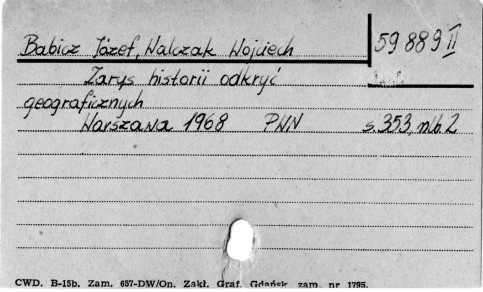 Babicz Józef, Walczak Wojciech 59 889 II
Zarys historii odkryć
geograficznych
Warszawa 1968 PWN s. 353, nlb. 2
CWD. B-15b. Zam. 657-DW/On. Zakł. Graf. Gdańsk zam. nr 1795.